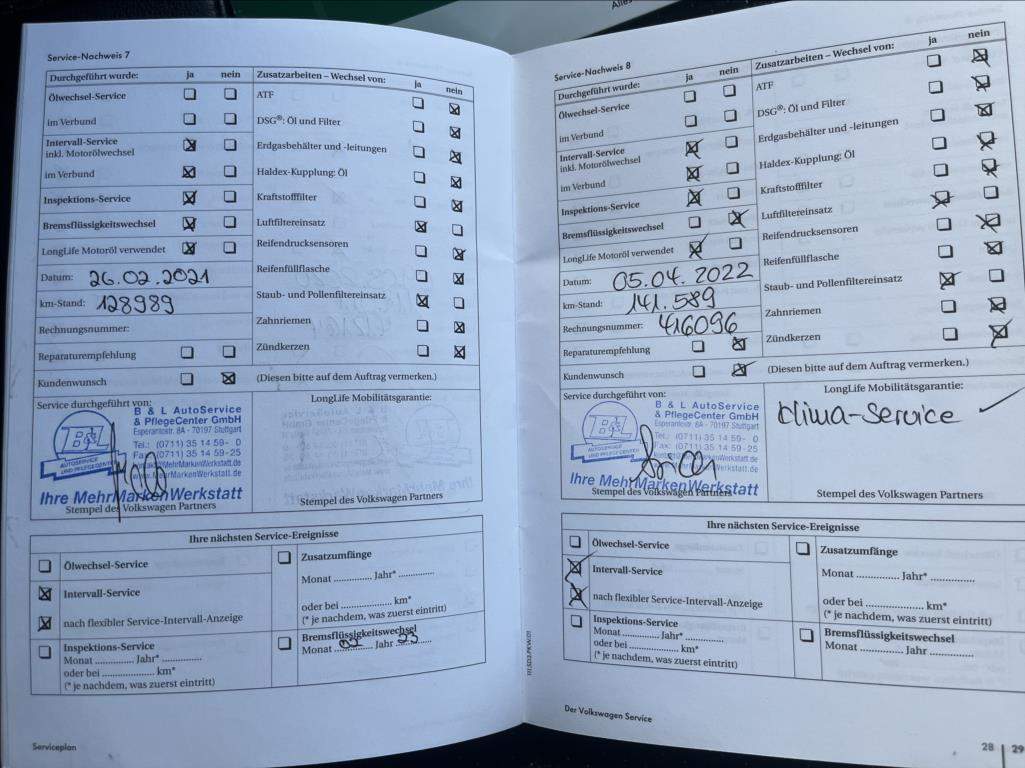 Alles
Service-Nachweis 7
Durchgeführt wurde: ja nein
Ölwechsel-Service
im Verbund
Intervall-Service
inkl. Motorölwechsel
im Verbund
Inspektions-Service
Bremsflüssigkeitswechsel
LongLife Motoröl verwendet
Datum: 26.02.2021
km-Stand: 128989
Rechnungsnummer:
Reparaturempfehlung
Kundenwunsch
Zusatzarbeiten – Wechsel von: ja nein
ATF
DSG®: Öl und Filter
Erdgasbehälter und -leitungen
Haldex-Kupplung: Öl
Kraftstofffilter
Luftfiltereinsatz
Reifendrucksensoren
Reifenfüllflasche
Staub- und Pollenfiltereinsatz
Zahnriemen
Zündkerzen
(Diesen bitte auf dem Auftrag vermerken.)
Service durchgeführt von:
B & L AutoService
& PflegeCenter GmbH
Esperantostr. 8A - 70197 Stuttgart
Tel.: (0711) 35 14 59- 0
Fax: (0711) 35 14 59-25
www.MehrMarkenWerkstatt.de
B&L
AUTOSERVICE
UND PFLEGECENTER
Ihre MehrMarkenWerkstatt
Stempel des Volkswagen Partners
LongLife Mobilitätsgarantie:
Stempel des Volkswagen Partners
Ihre nächsten Service-Ereignisse
Ölwechsel-Service
Intervall-Service
nach flexibler Service-Intervall-Anzeige
Inspektions-Service
Monat ............. Jahr* .............
oder bei ................. km*
(* je nachdem, was zuerst eintritt)
Zusatzumfänge
Monat ............. Jahr* .............
oder bei ................. km*
(* je nachdem, was zuerst eintritt)
Bremsflüssigkeitswechsel
Monat 02 Jahr 23
Serviceplan
Service-Nachweis 8
Durchgeführt wurde: ja nein
Ölwechsel-Service
im Verbund
Intervall-Service
inkl. Motorölwechsel
im Verbund
Inspektions-Service
Bremsflüssigkeitswechsel
LongLife Motoröl verwendet
Datum: 05.04.2022
km-Stand: 141.589
Rechnungsnummer: 416096
Reparaturempfehlung
Kundenwunsch
Zusatzarbeiten – Wechsel von: ja nein
ATF
DSG®: Öl und Filter
Erdgasbehälter und -leitungen
Haldex-Kupplung: Öl
Kraftstofffilter
Luftfiltereinsatz
Reifendrucksensoren
Reifenfüllflasche
Staub- und Pollenfiltereinsatz
Zahnriemen
Zündkerzen
(Diesen bitte auf dem Auftrag vermerken.)
Service durchgeführt von:
B & L AutoService
& PflegeCenter GmbH
Esperantostr. 8A - 70197 Stuttgart
Tel.: (0711) 35 14 59- 0
Fax: (0711) 35 14 59-25
www.MehrMarkenWerkstatt.de
AUTOSERVICE
UND PFLEGECENTER
Ihre MehrMarkenWerkstatt
Stempel des Volkswagen Partners
LongLife Mobilitätsgarantie:
Klima-Service ✓
Stempel des Volkswagen Partners
Ihre nächsten Service-Ereignisse
Ölwechsel-Service
Intervall-Service
nach flexibler Service-Intervall-Anzeige
Inspektions-Service
Monat ............. Jahr* .............
oder bei ................. km*
(* je nachdem, was zuerst eintritt)
Zusatzumfänge
Monat ............. Jahr* .............
oder bei ................. km*
(* je nachdem, was zuerst eintritt)
Bremsflüssigkeitswechsel
Monat ............. Jahr .............
Der Volkswagen Service
28 | 29